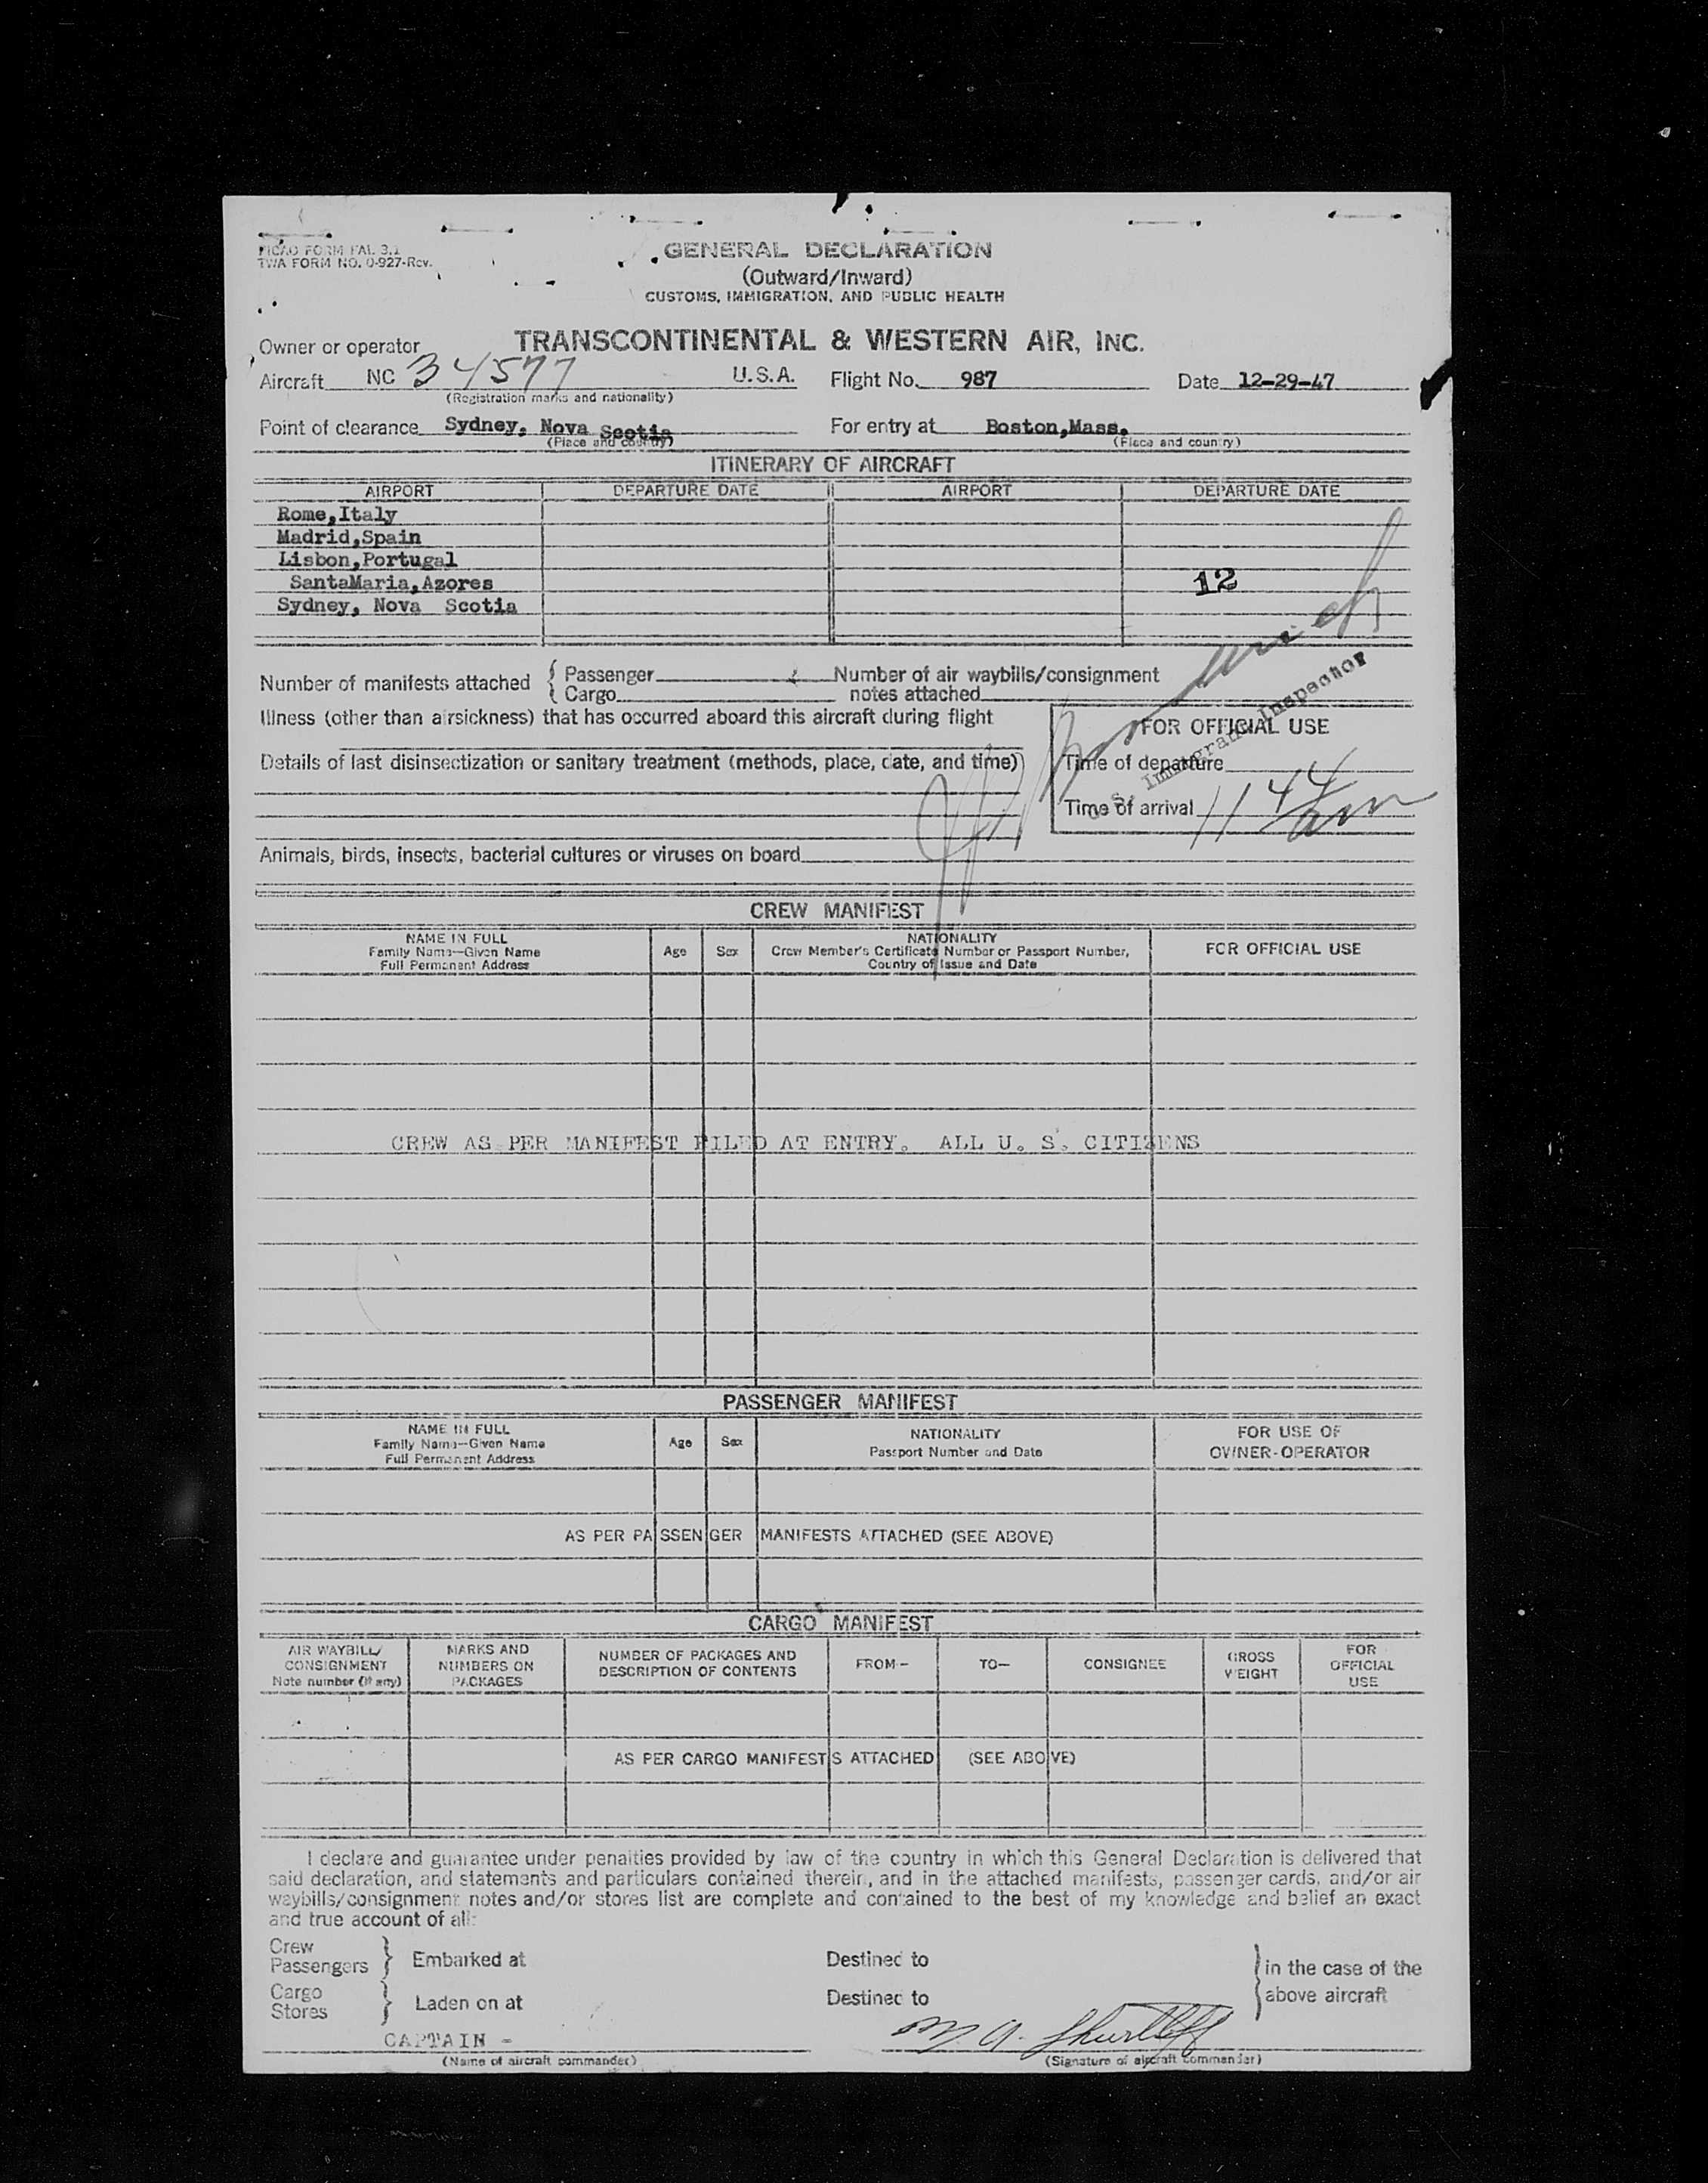 PICAO FORM FAL 3.1
TWA FORM NO. 0-927-Rev.
GENERAL DECLARATION
(Outward/Inward)
CUSTOMS, IMMIGRATION, AND PUBLIC HEALTH
Owner or operator TRANSCONTINENTAL & WESTERN AIR, INC.
Aircraft NC 34577 U.S.A. Flight No. 987 Date 12-29-47
(Registration marks and nationality)
Point of clearance Sydney, Nova Scotia For entry at Boston,Mass.
(Place and country) (Place and country)
ITINERARY OF AIRCRAFT
AIRPORT DEPARTURE DATE AIRPORT DEPARTURE DATE
Rome,Italy
Madrid,Spain
Lisbon,Portugal
SantaMaria,Azores 12
Sydney, Nova Scotia
Number of manifests attached { Passenger Number of air waybills/consignment
{ Cargo notes attached
Illness (other than airsickness) that has occurred aboard this aircraft during flight
FOR OFFICIAL USE
Immigrant Inspector
Details of last disinsectization or sanitary treatment (methods, place, date, and time)
Time of departure
Time of arrival 11 44 am
Animals, birds, insects, bacterial cultures or viruses on board
CREW MANIFEST
NAME IN FULL
Family Name—Given Name
Full Permanent Address
Age Sex
NATIONALITY
Crew Member's Certificate Number or Passport Number,
Country of Issue and Date
FOR OFFICIAL USE
CREW AS PER MANIFEST FILED AT ENTRY. ALL U. S. CITIZENS
PASSENGER MANIFEST
NAME IN FULL
Family Name—Given Name
Full Permanent Address
Age Sex
NATIONALITY
Passport Number and Date
FOR USE OF
OWNER-OPERATOR
AS PER PASSENGER MANIFESTS ATTACHED (SEE ABOVE)
CARGO MANIFEST
AIR WAYBILL/
CONSIGNMENT
Note number (if any)
MARKS AND
NUMBERS ON
PACKAGES
NUMBER OF PACKAGES AND
DESCRIPTION OF CONTENTS
FROM—
TO—
CONSIGNEE
GROSS
WEIGHT
FOR
OFFICIAL
USE
AS PER CARGO MANIFESTS ATTACHED (SEE ABOVE)
I declare and guarantee under penalties provided by law of the country in which this General Declaration is delivered that
said declaration, and statements and particulars contained therein, and in the attached manifests, passenger cards, and/or air
waybills/consignment notes and/or stores list are complete and contained to the best of my knowledge and belief an exact
and true account of all:
Crew
Passengers } Embarked at Destined to } in the case of the
Cargo
Stores } Laden on at Destined to above aircraft
CAPTAIN - M. A. Shurtleff
(Name of aircraft commander) (Signature of aircraft commander)